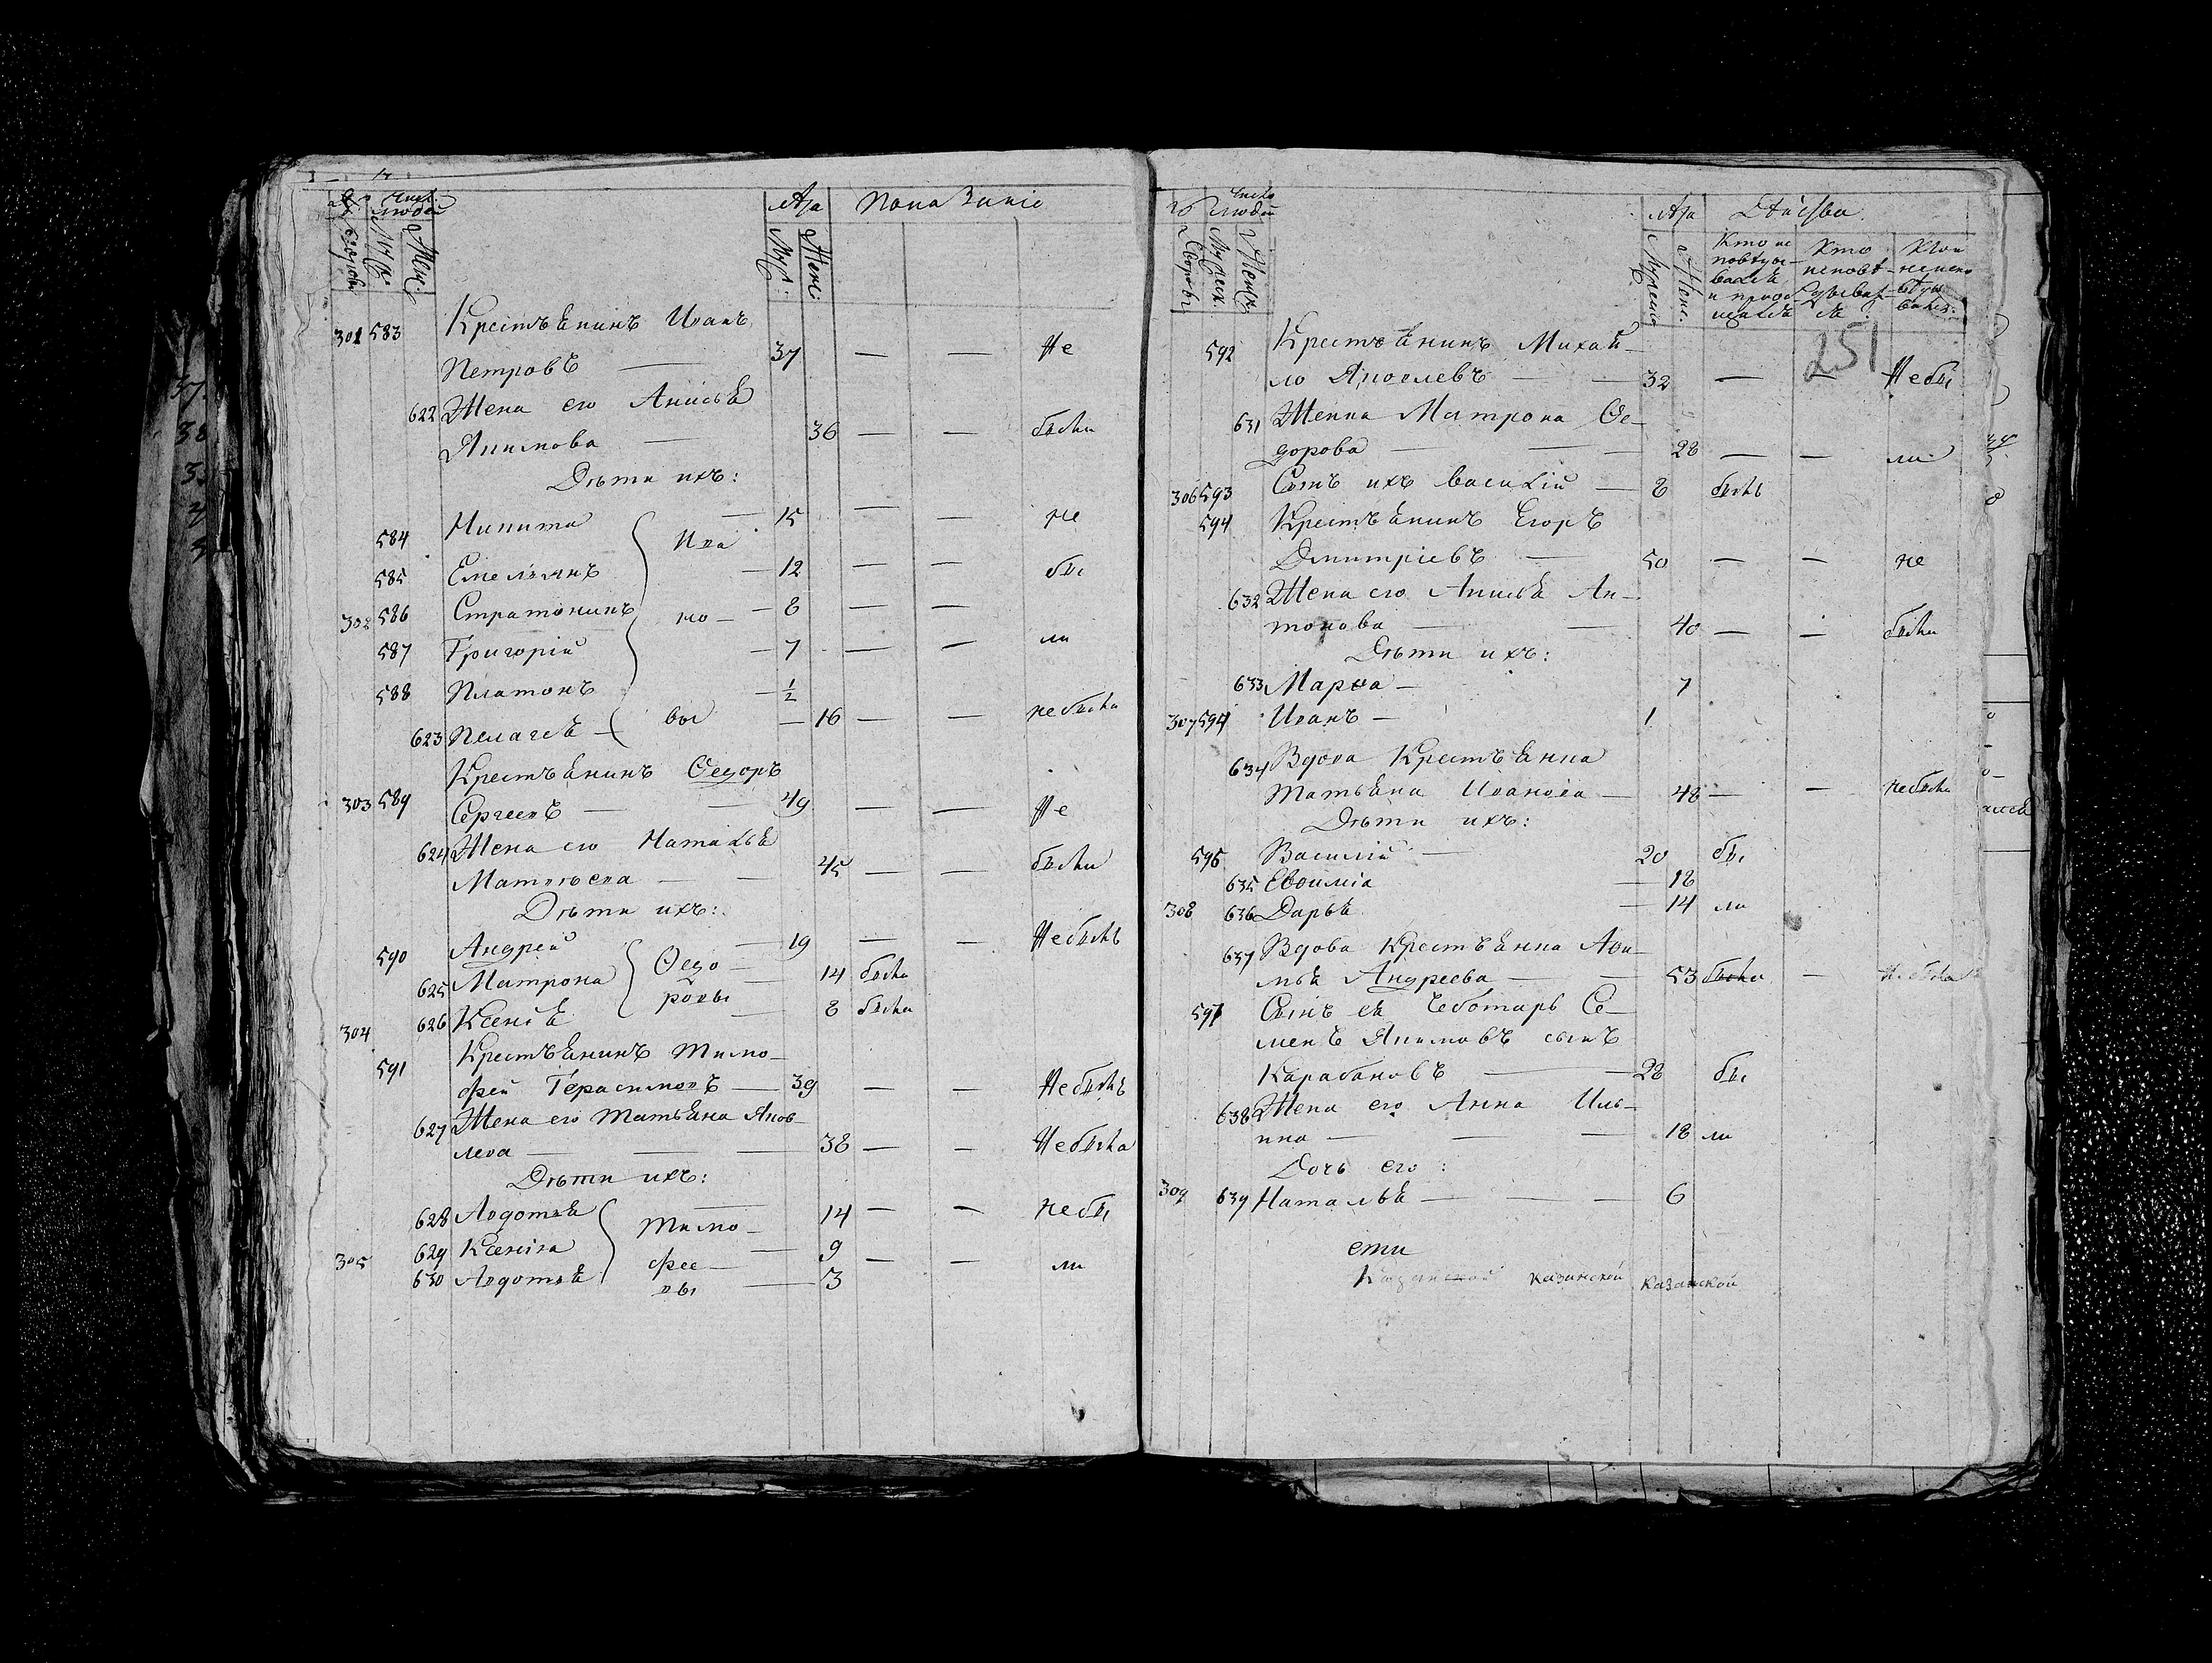 Числ.
людей
Лѣта Показаніе
Муж. Женс.
301 583 Крестьянинъ Иванъ
Петровъ — 37 — — Не
622 Жена его Анисья
Якимова — 36 — — были
Дѣти ихъ:
584 Никита — 15 — — не
Ива
585 Емельянъ — 12 — — бы
302 586 Стратоникъ но — 8 — —
587 Григорій — 7 — — ли
588 Платонъ — 1/2
623 Пелагея — вы — 16 — — не была
Крестьянинъ Ѳедоръ
303 589 Сергеевъ — — 49 — — Не
624 Жена его Наталья
Матвѣева — — 45 — — были
Дѣти ихъ:
590 Андрей — 19 — — Не былъ
625 Матрона Ѳедо — 14 была
626 Ксенія ровы — 8 была
304
Крестьянинъ Тимо-
591 фей Герасимовъ — 39 — — Не былъ
627 Жена его Татьяна Яков-
лева — — — 38 — — Не была
Дѣти ихъ:
628 Авдотья Тимо — 14 — — не бы
629 Ксенія фее — 9 — — ли
305 630 Авдотья вы — 3
Число
людей
Лѣта Дѣйства
Дворовъ Мужеск. Женск.
Мужеска Женс.
Кто ис Кто Кто и
повѣды- исповѣ- не испо
вался дывал- вѣды
и пріоб ся вался.
щался
251
592 Крестьянинъ Михай-
ло Яковлевъ — — 32 — — Не бы
631 Женна Матрона Ѳе-
дорова — — — 28 — — ли
306 593 Сынъ ихъ Василій — 8 былъ
594 Крестьянинъ Егоръ
Дмитріевъ — 50 — — не
632 Жена его Анисья Ан-
тонова — — 40 — — были
Дѣти ихъ:
633 Марѳа — 7
307 594 Иванъ — 1
634 Вдова Крестьянка
Татьяна Иванова — 48 — — не была
Дѣти ихъ:
595 Василій — 20 бы
635 Евѳимія — 18
308 636 Дарья — 14 ли
637 Вдова Крестьянка
Андреева — — 53 была — Не была
597 Сынъ ея Чеботарь Се-
менъ Якимовъ сынъ
Карабановъ — — 28 бы
638 Жена его Анна Иль-
ина — — — 18 ли
Дочь его:
309 639 Наталья — — — 6
ети
Казанской казанской казанской